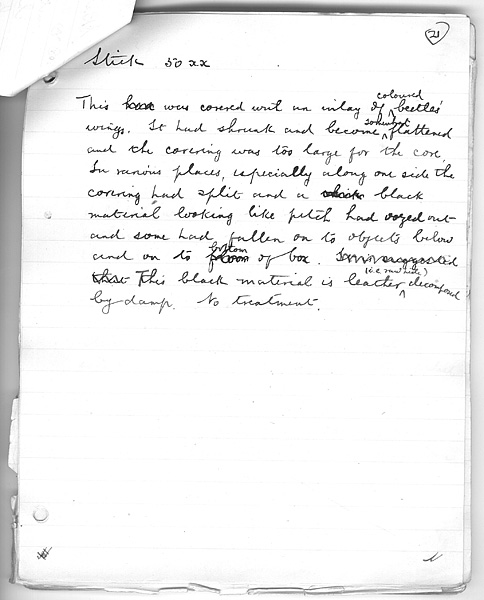 21
Stick 50 xx
This was covered with an inlay of coloured beetles'
wings. It had shrunk and become somewhat flattened
and the covering was too large for the core.
In various places, especially along one side the
covering had split and a black
material looking like pitch had oozed out
and some had fallen on to objects below
and on to bottom of box.
This black material is leather (i.e. raw hide) decomposed
by damp. No treatment.